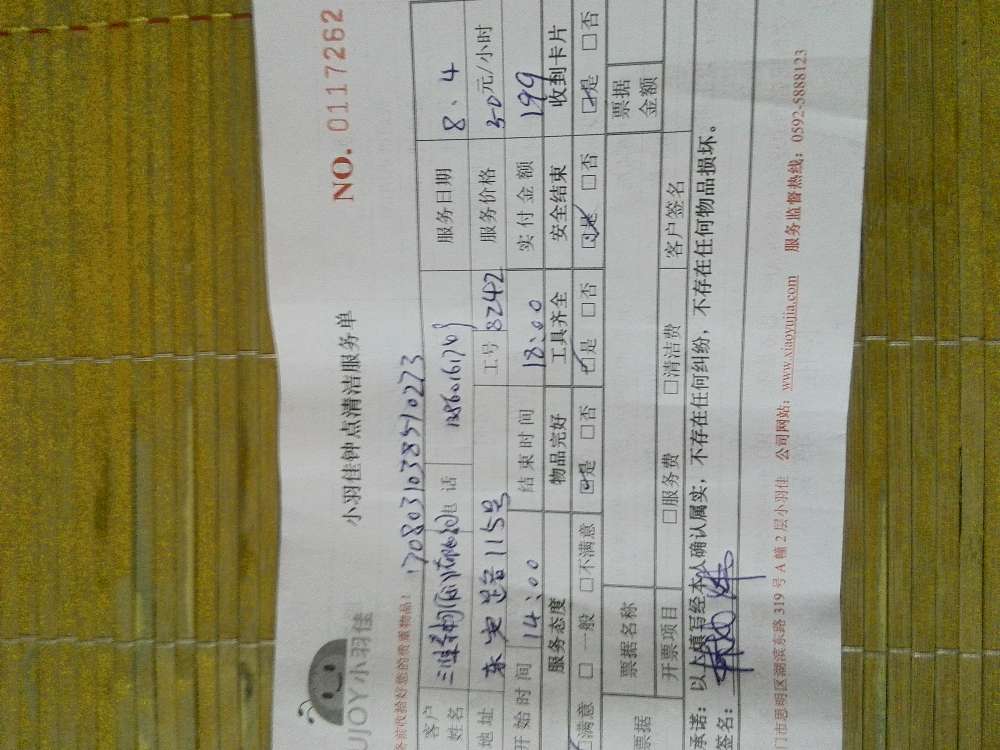 UJOY小羽佳
小羽佳钟点清洁服务单
NO. 0117262
前收拾好您的贵重物品！
1708031038510273
客户姓名 电话 服务日期 8、4
地址 东 路115号 工号 8242 服务价格 50元/小时
开始时间 14:00 结束时间 18:00 实付金额 199
服务态度 物品完好 工具齐全 安全结束 收到卡片
满意 □一般 □不满意 ☑是 □否 ☑是 □否 ☑是 □否 ☑是 □否
票据 票据名称 票据金额
开票项目 □服务费 □清洁费 客户签名
承诺：以上填写经本人确认属实，不存在任何纠纷，不存在任何物品损坏。
签名：
门市思明区湖滨东路319号A幢2层小羽佳 公司网站：www.xiaoyujia.com 服务监督热线：0592-5888123